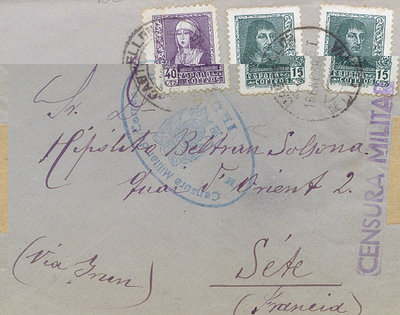 40
ESPAÑA
CORREOS
15
ESPAÑA
CORREOS
15
ESPAÑA
CORREOS
Sr. D.
Hipólito Beltran Solsona
Quai d'Orient 2.
Séte
(Via Irun)
(Francia)
CENSURA MILITAR
Censura Militar
IRUN